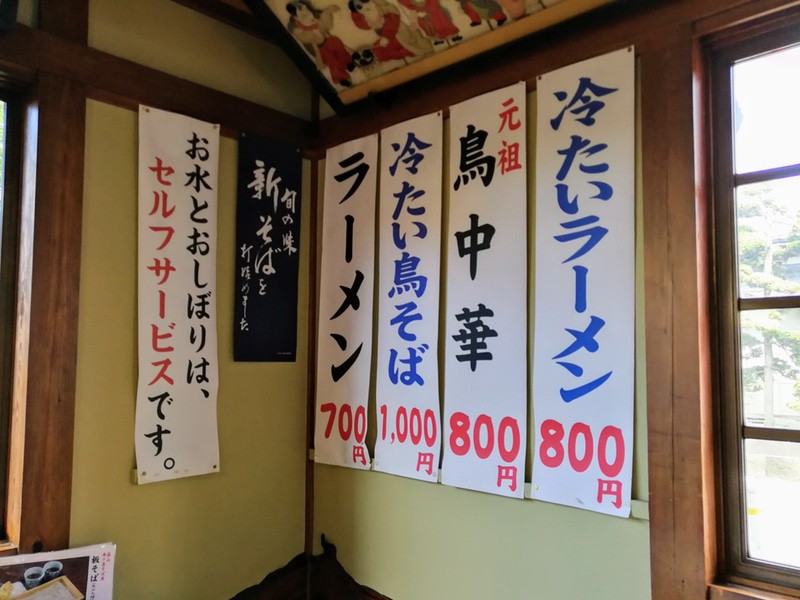 お水とおしぼりは、
セルフサービスです。
旬の味
新そばを
打始めました
ラーメン
700円
冷たい鳥そば
1,000円
元祖
鳥中華
800円
冷たいラーメン
800円
板そば